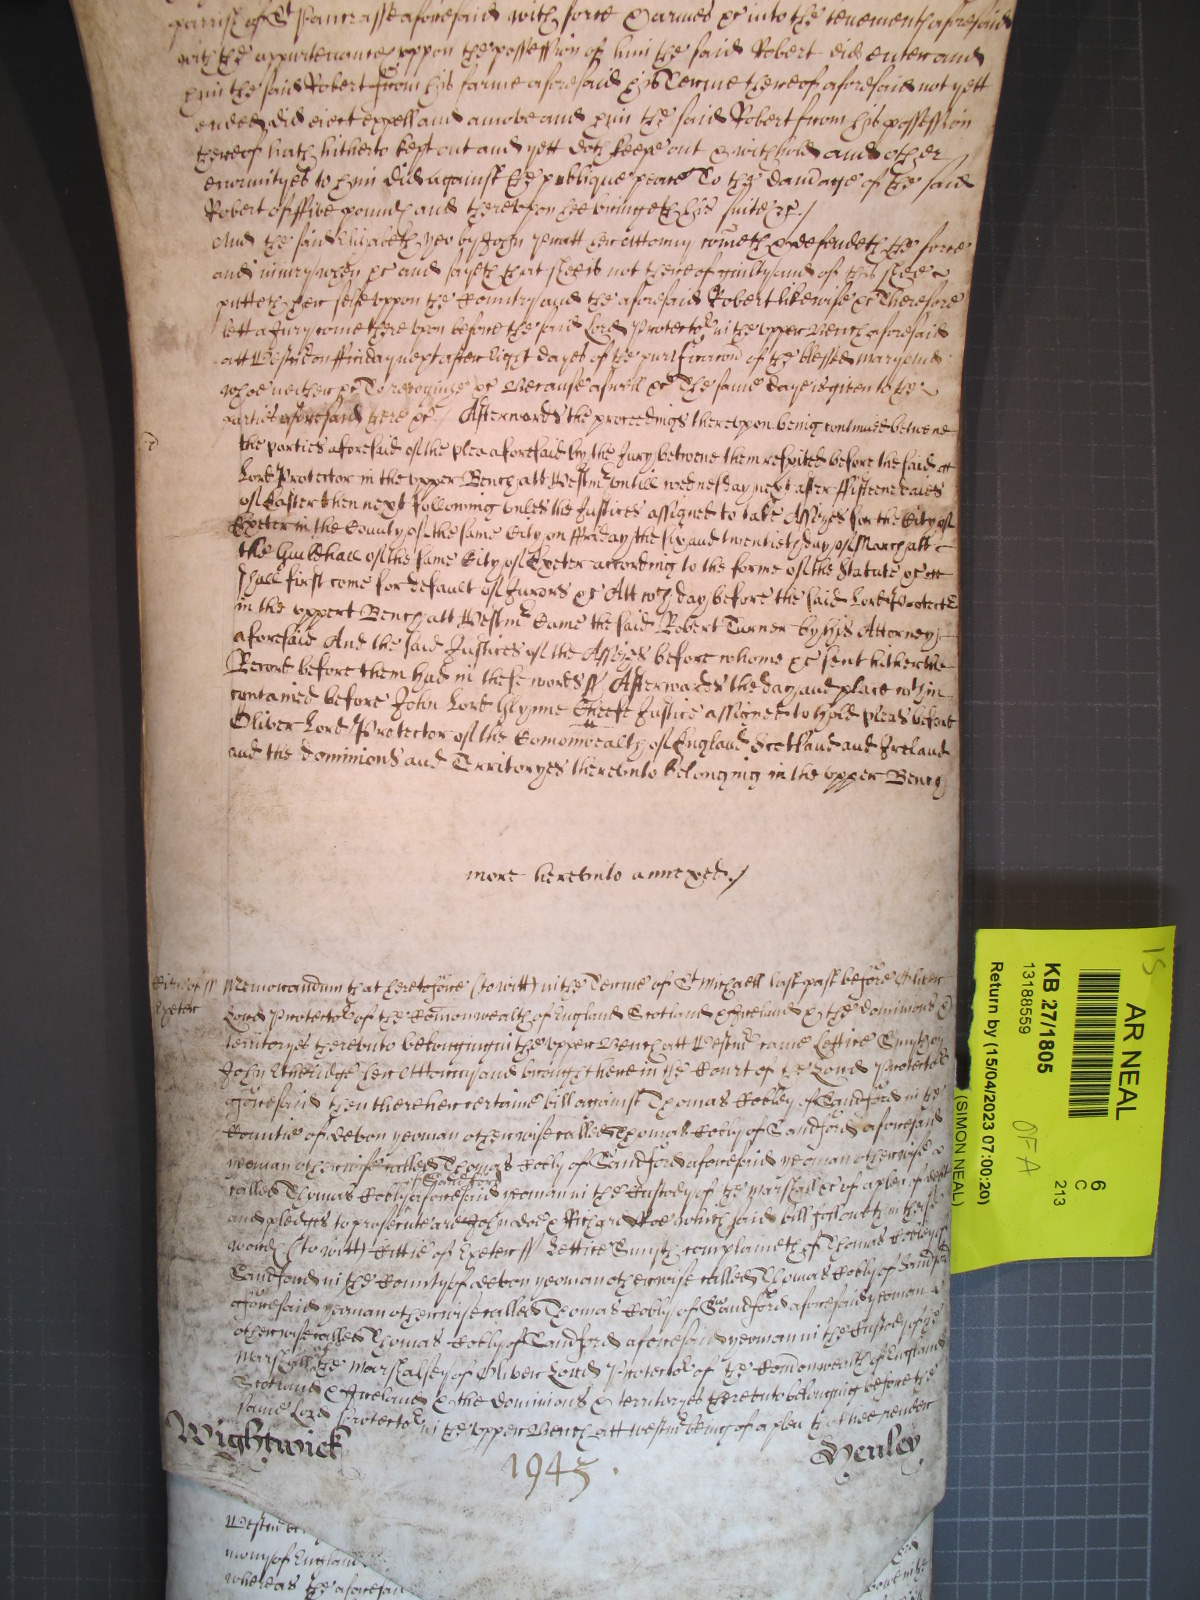 parrish of St Pancrasse aforesaid with force & armes &c into the tenements aforesaid
with the appurtenances uppon the possession of him the said Robert did enter and
him the said Robert from his farme aforesaid his Terme thereof aforesaid not yett
ended did eiect expell and amove and him the said Robert from his possession
thereof hath hitherto kept out and yett doth keepe out & withhold and other
enormityes to him did against the publique peace To the damage of the said
Robert of ffive pounds and thereupon hee bringeth his suite &c /
And the said Elizabeth Yeo by John her Attorny cometh & defendeth the force
and iniury when &c and sayeth that shee is not thereof guilty and of this shee
putteth her selfe uppon the Countrey and the aforesaid Robert likewise &c Therefore
lett a Jury come thereupon before the said Lord Protector in the upper Bench aforesaid
att Westm on ffriday next after Eight dayes of the purificacon of the blessed Mary
whoe neither &c To recognize &c Because aswell &c The same day is given to the
parties aforesaid there &c / Afterwards the proceedings thereupon being continued betweene
the parties aforesaid of the plea aforesaid by the Jury betweene them respited before the said
Lord Protector in the upper Bench att Westmr untill wednesday next after ffifteene daies
of Easter then next following unles the Justices assigned to take Assizes for the City of
Exeter in the County of the same City on ffriday the six and twentieth day of March att
the Guildhall of the same City of Exeter according to the forme of the Statute &c
shall first come for default of Jurors &c Att wch day before the said Lord Protector
in the uppert Bench att Westmr Came the said Robert Turner by his Attorney
aforesaid And the said Justices of the Assizes before whome &c sent hither the
Record before them had in these words ss Afterwards the day and place wthin
contained before John Lord Glynne Cheefe Justice assigned to hold pleas before
Oliver Lord Protector of the Comonwealth of England Scotland and Ireland
and the dominions and Territoryes thereunto belonging in the upper Bench
more hereunto annexed /
Citty of Exeter ss Memorandum that heretofore (to witt) in the Terme of St Michaell last past before Oliver
Lord Protector of the Comonwealth of England Scotland & Ireland & the dominions &
territoryes thereunto belonging in the upper Bench att Westmr came Lettice Smyth by
John her Attorny and brought here in the Court of the Lord Protector
aforesaid then there her certaine bill against Thomas Robly of Sandford in the
Countie of devon yeoman otherwise called Thomas Robly of Sandford aforesaid
yeoman otherwise called Thomas Robly of Sandford aforesaid yeoman otherwise
called Thomas Robly of Sandford aforesaid yeoman in the Custody of the Marshall &c of a plea of debt
and pledges to prosecute are John doe & Richard Roe which said bill followeth in these
words (to witt) Cittie of Exeter ss Lettice Smyth complaineth of Thomas Robly of
Sandford in the County of devon yeoman otherwise called Thomas Robly of Sandford
aforesaid yeoman otherwise called Thomas Robly of Sandford aforesaid yeoman
otherwise called Thomas Robly of Sandford aforesaid yeoman in the Custody of the
Marshall of the Marshalsey of Oliver Lord Protector of the Comonwealth of England
Scotland & Ireland & the dominions & territoryes thereunto belonging before the
same Lord Protector in the upper Bench att Westmr being of a plea that hee render
Wightwick
1945
Henley
Westmr
mony of England
whereas the aforesaid
AR NEAL
KB 27/1805
13188559
Return by (15/04/2023 07:00:20)
(SIMON NEAL)
6
C
213
OFA
15